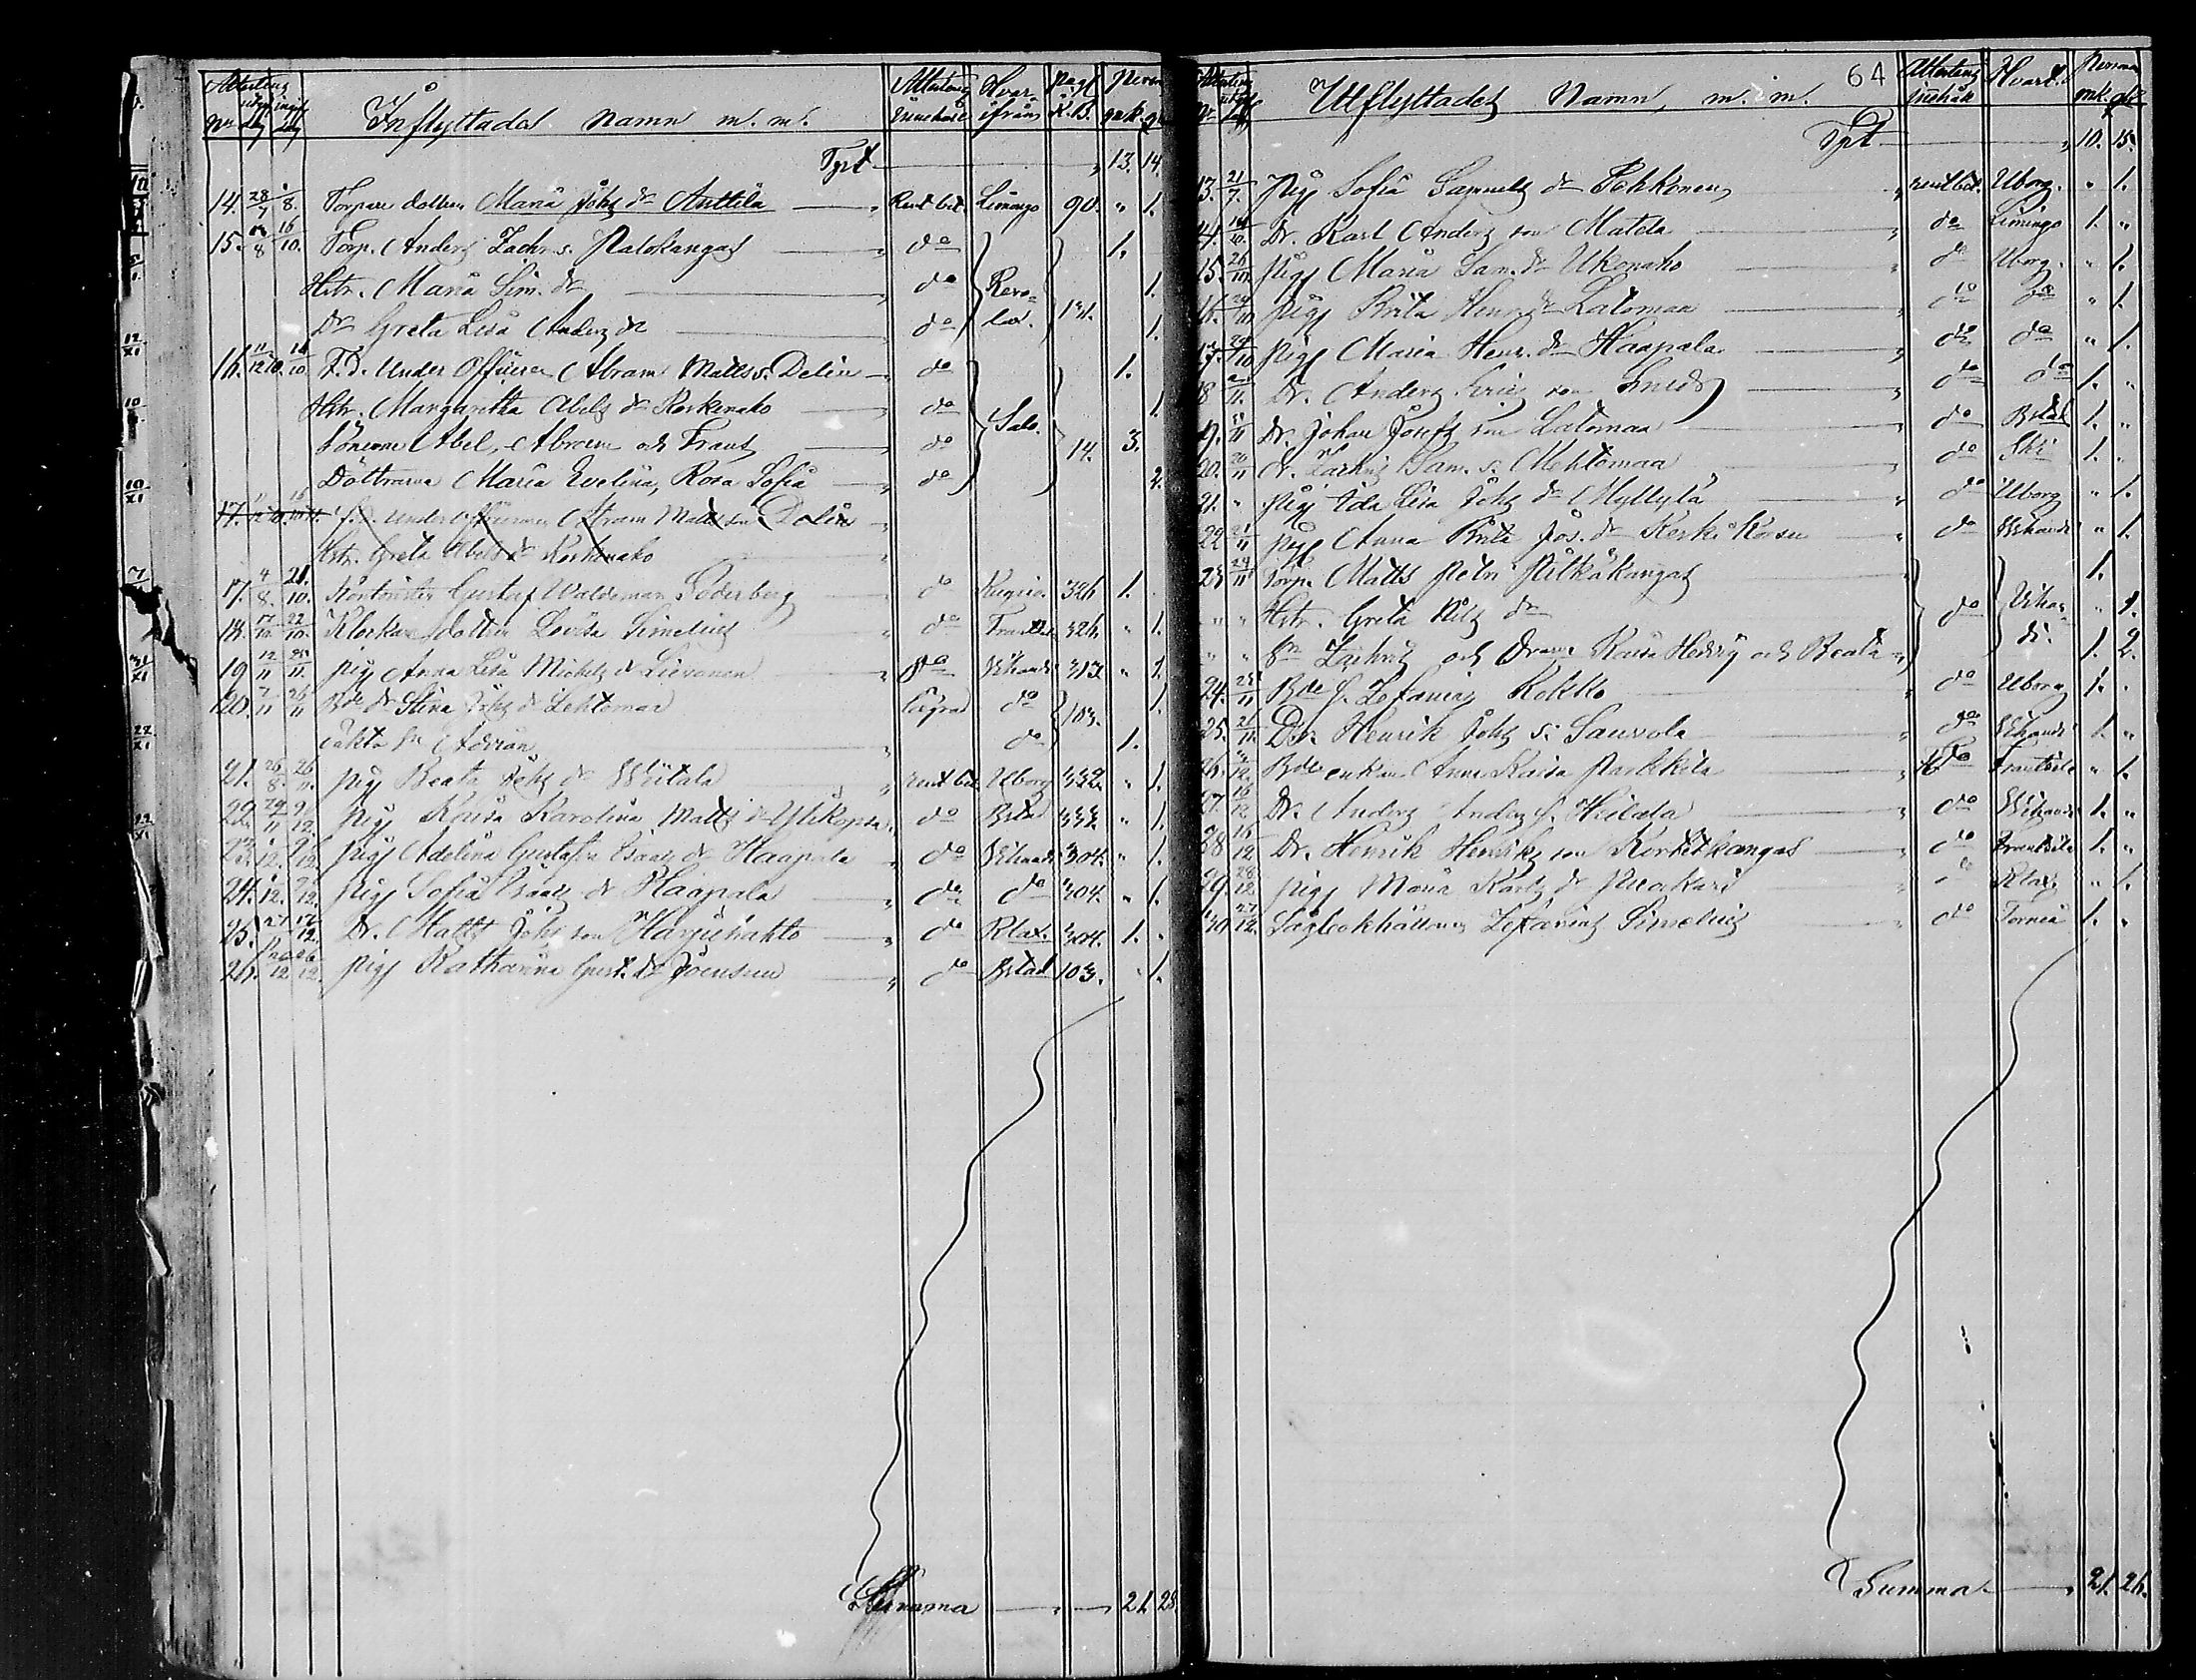 Attestens Inflyttades Namn m. m. Attestens innehåll Hvar ifrån Pag. i K.B. Person
No utg. ingif. mk. qk.
Tpt 13. 14.
14. 28/7 /8. Torpare dottern Maria Johs dr Anttila Rent bet. Limingo 90. " 1.
15. /8 16/10. Torp. Anders Zachr. s. Palokangas do 1.
Hstr. Maria Sim. dr do Revo- 1.
Dr Greta Lisa Anders dr do lax. 131. 1.
16. 11/12 10. 14/10. F.d. Under Officeren Abram Matts s. Delin do 1.
Hstr. Margaretha Abels dr Korkenaho do Salo. 1.
Sönerne Abel, Abram och Frans do 14. 3.
Döttrarna Maria Evelina, Rosa Sofia do 2.
17. f.d. under officeren Abram Matts son Delin
Hstr. Greta Abels dr Korkenaho
17. 4/8. 21./10. Kontorister Gustaf Waldemar Söderberg do Kuopio. 326 1.
18. 17/10. 22/10. Klockare dottern Lovisa Simelius do Frantsila 326. " 1.
19 12/11 25/11. Pig. Anna Lisa Michels dr Lievonen do Wihandi 313. " 1.
20. 7/11 26/11 Bde dr Stina Johs dr Lehtomaa do 103. 1.
oäkta sn Adrian do 1.
21. 26/8. 26/11. Pig Beata Johs dr Wiitala rent bet. Uborg 332. " 1.
22. 29/11 9/12. Pig Kaisa Karolina Matts dr Ylikopsa do Bstad 333. " 1.
23. /12. 9/12. Pig Adelina Gustafva Isaaks dr Haapala do Wihandi 304. " 1.
24. 1/12. 9/12. Pig Sofia Isaaks dr Haapala do do 304. " 1.
25. 27/ 17/12. Dr. Matts Johs son Harjunaho do Rlax. 304. 1. "
26. 26/12 26/12. Pig Katharina Gust. dr Joensuu do Bstad 103. " 1.
Summa 21. 28.
64
Attestens Utflyttades Namn, m. m. Attestens innehåll Hvart. Person
No utgif. mk. qk.
Tpt 10. 15.
13. 21/7. Pig Sofia Samuels dr Pehkonen rent bet. Uborg. " 1.
14. 14/10. Dr. Karl Anders son Matela do Limingo 1. "
15. 26/10. Pig Maria Sam. dr Ukonaho do Uborg. " 1.
16. 29/10 Pig Brita Henr. dr Latomaa do do " 1.
17. 29/10 Pig Maria Henr. dr Haapala do do " 1.
18 /11. Dr. Anders Erics son Smed do do 1. "
19. /11 Dr. Johan Josefs son Latomaa do Bstad 1. "
20. 20/11 Dr. Zachris Sam. s. Mehtomaa do Ski 1. "
21. " Pig Ida Lisa Johs dr Myllylä do Uborg " 1.
22 21/11 Pig Anna Brita Jos. dr Koski do Wihandi " 1.
23 24/11 Torp. Matts Petri Pitkäkangas 1.
" " Hstr. Greta Nils dr do Wihan- " 1.
" " Sn Zachris och Drarne Kaisa Hedvig och Beata di. 1. 2.
24. 25/11 Bde s. Zefanias Kokko do Uborg 1. "
25. 21/11. Dr. Henrik Johs s. Saurola do Wihandi 1. "
26. /12. Bde enkan Anna Kaisa Parkkila do Frantsila " 1.
27. 16/12 Dr. Anders Anders s. Heilala do Wihandi 1. "
28 16/12 Dr. Henrik Henriks son Korkiakangas do Frantsila 1. "
29 28/12. Pig Maria Karls dr Puukari do Rlax. " 1.
30. 27/12. Zefanias Simelius do Torneå 1. "
Summa 21. 26.